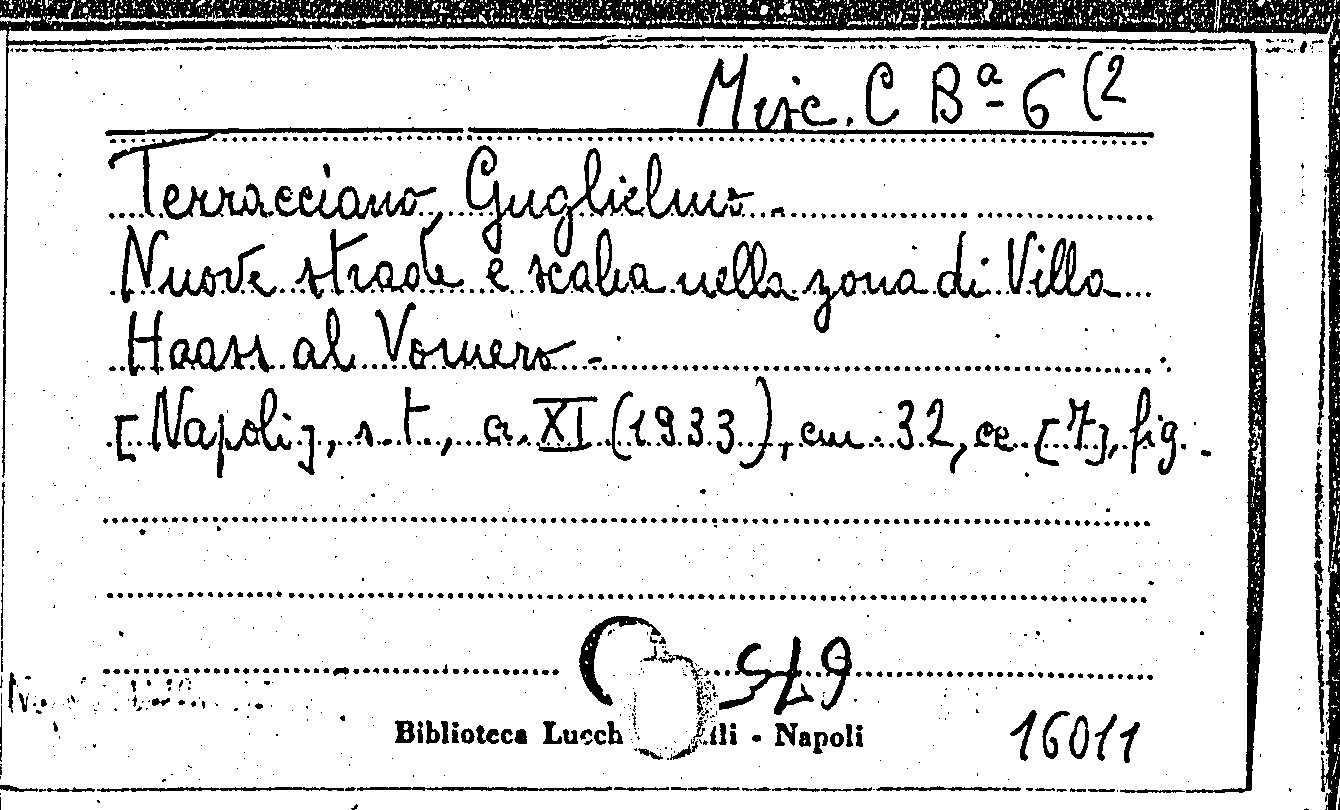 Misc. C Bª- 6 (2
Terracciano, Guglielmo.-
Nuove strade e scalea nella zona di Villa
Haass al Vomero.-
[Napoli], s. t., a. XI (1933), cm. 32, cc. [7], fig.-
Biblioteca Lucch ili - Napoli
16011